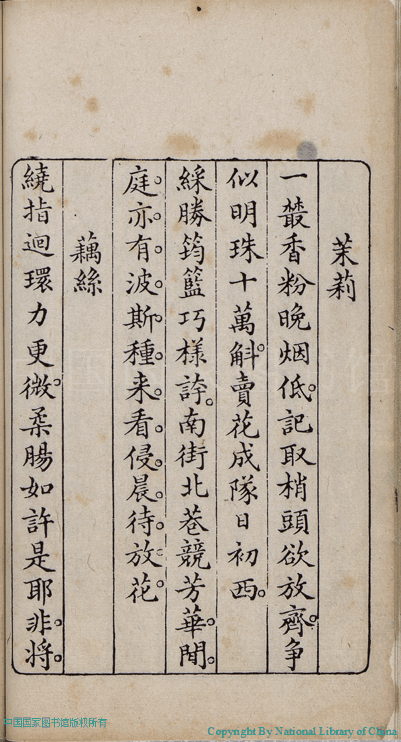 茉莉
一叢香粉晚烟低。記取梢頭欲放齊。争
似明珠十萬斛。賣花成隊日初西。
綵勝筠籃巧樣誇。南街北巷競芳華。閒
庭亦有波斯種。来看侵晨待放花
藕絲
繞指迴環力更微。柔腸如許是耶非。將
中国国家图书馆版权所有
Copyright By National Library of China